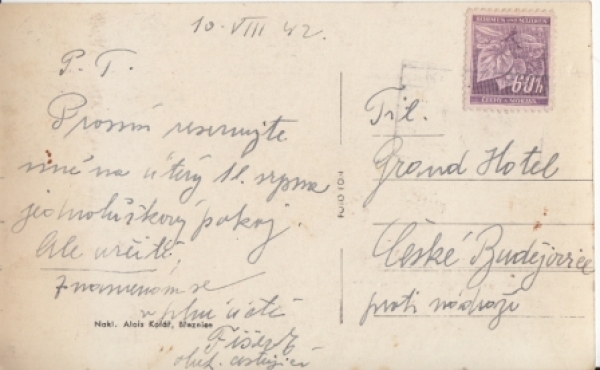 10. VIII 42.
P. T.
Prosím reservujte
mně na úterý 11. srpna
jednolůžkový pokoj.
Ale určitě.
Znamenám se
v plné úctě
Fišer
obch. cestující
Nakl. Alois Kolář, Březnice
BÖHMEN UND MÄHREN
60h
ČECHY A MORAVA
Tit.
Grand Hotel
České Budějovice
proti nádraží